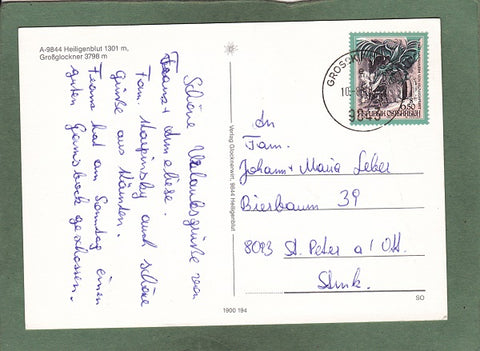 A-9844 Heiligenblut 1301 m,
Großglockner 3798 m
Schöne Urlaubsgrüße von
Franz + Anneliese.
Fam. auch schöne
Grüße aus Kärnten.
Franz hat am Sonntag einen
guten Gamsbock geschossen.
Verlag Glocknerwirt, 9844 Heiligenblut
1900 194
GROSSKI
10.-8
984
5.50
REPUBLIK ÖSTERREICH
An
Fam.
Johann + Maria Leber
Bierbaum 39
8093 St. Peter a/Ott.
Stmk.
SO